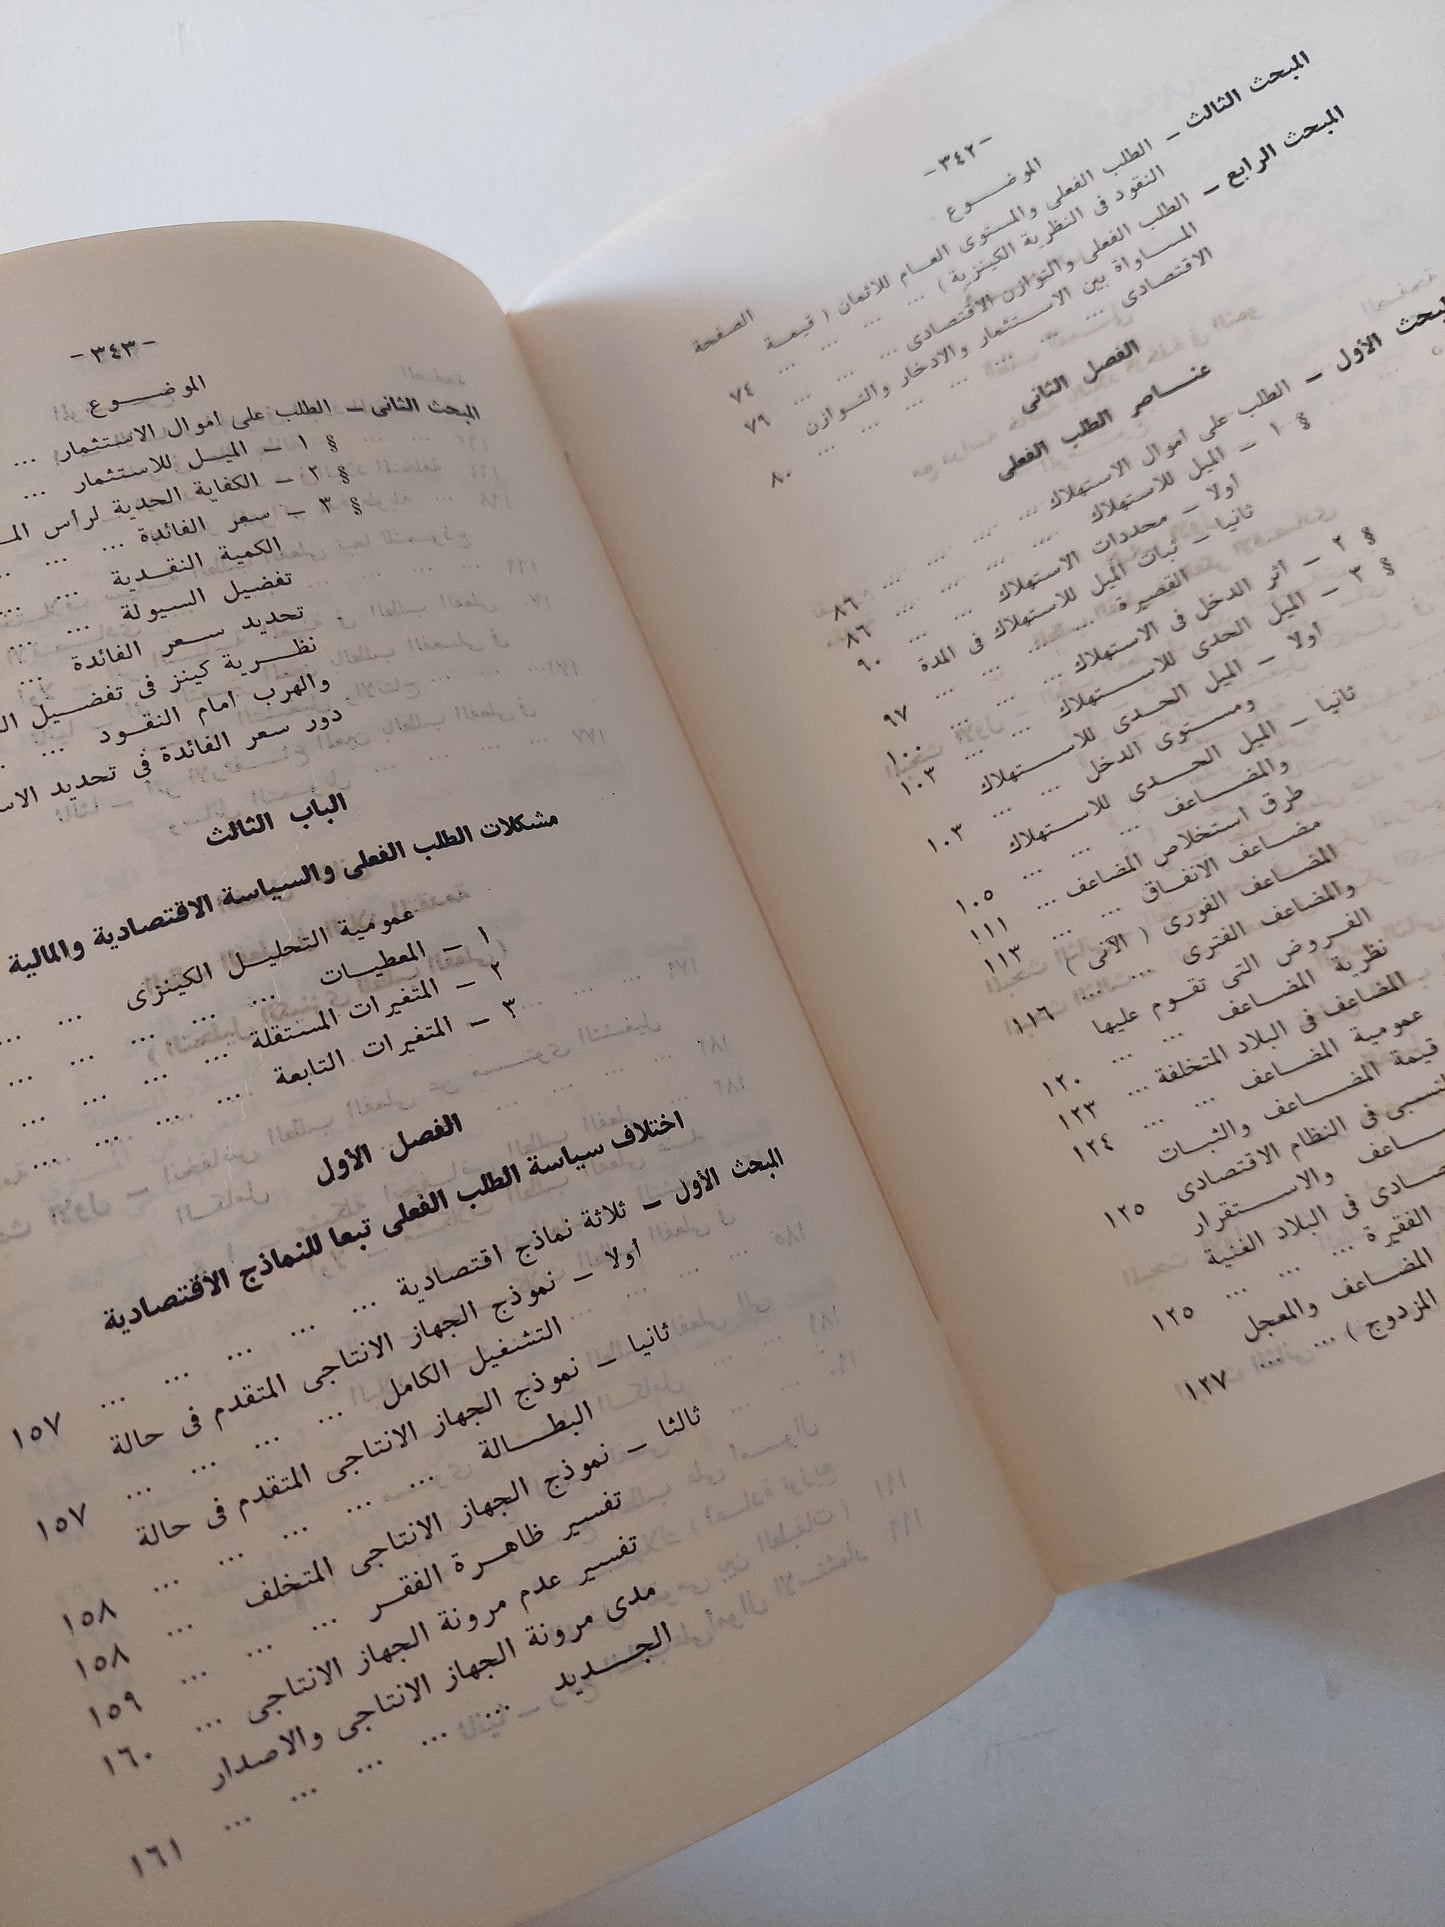 - ٣٤٢ -
الموضوع
الصفحة
المبحث الثالث - الطلب الفعلى والمستوى العام للاثمان ( قيمة
النقود فى النظرية الكينزية ) ... ... ... ٧٤
المبحث الرابع - الطلب الفعلى والتوازن الاقتصادى ... ... ... ٧٩
المساواة بين الاستثمار والادخار والتوازن
الاقتصادى ... ... ... ... ... ٨٠
الفصل الثانى
عناصر الطلب الفعلى
المبحث الأول - الطلب على أموال الاستهلاك ... ... ... ... ٨٦
§ ١ - الميل للاستهلاك ... ... ... ... ٨٦
أولا - محددات الاستهلاك ... ... ... ٩٠
ثانيا - ثبات الميل للاستهلاك فى المدة
القصيرة ... ... ... ... ٩٧
§ ٢ - أثر الدخل فى الاستهلاك ... ... ... ١٠٠
§ ٣ - الميل الحدى للاستهلاك ... ... ... ١٠٣
أولا - الميل الحدى للاستهلاك
ومستوى الدخل ... ... ... ١٠٣
ثانيا - الميل الحدى للاستهلاك
والمضاعف ... ... ... ١٠٥
طرق استخلاص المضاعف ... ١١١
مضاعف الانفاق ... ... ١١٣
المضاعف الفورى ( الآنى )
والمضاعف الفترى ... ... ١١٦
الفروض التى تقوم عليها
نظرية المضاعف ... ... ١٢٠
المضاعف فى البلاد المتخلفة ... ١٢٣
عمومية المضاعف ... ... ١٢٤
قيمة المضاعف والثبات
النسبى فى النظام الاقتصادى ١٢٥
والاستقرار
فى البلاد الغنية
الفقيرة ... ... ... ١٢٥
المضاعف والمعجل
المزدوج ) ... ... ١٢٧
- ٣٤٣ -
الموضوع
المبحث الثانى - الطلب على أموال الاستثمار ...
§ ١ - الميل للاستثمار ...
§ ٢ - الكفاية الحدية لرأس
§ ٣ - سعر الفائدة ... ... ...
الكمية النقدية ... ...
تفضيل السيولة ... ...
تحديد سعر الفائدة ...
نظرية كينز فى تفضيل
والهرب أمام النقود ... ...
دور سعر الفائدة فى تحديد
الباب الثالث
مشكلات الطلب الفعلى والسياسة الاقتصادية والمالية
عمومية التحليل الكينزى ... ...
١ - المعطيات ... ... ... ... ...
٢ - المتغيرات المستقلة ... ... ... ...
٣ - المتغيرات التابعة ... ... ... ...
الفصل الأول
اختلاف سياسة الطلب الفعلى تبعا للنماذج الاقتصادية
المبحث الأول - ثلاثة نماذج اقتصادية ... ... ... ... ... ١٥٧
أولا - نموذج الجهاز الانتاجى المتقدم فى حالة
التشغيل الكامل ... ... ... ... ١٥٧
ثانيا - نموذج الجهاز الانتاجى المتقدم فى حالة
البطالة ... ... ... ... ... ... ١٥٨
ثالثا - نموذج الجهاز الانتاجى المتخلف ... ١٥٨
تفسير ظاهرة الفقر ... ... ... ١٥٩
تفسير عدم مرونة الجهاز الانتاجى ... ١٦٠
مدى مرونة الجهاز الانتاجى والاصدار
الجديد ... ... ... ... ... ١٦١